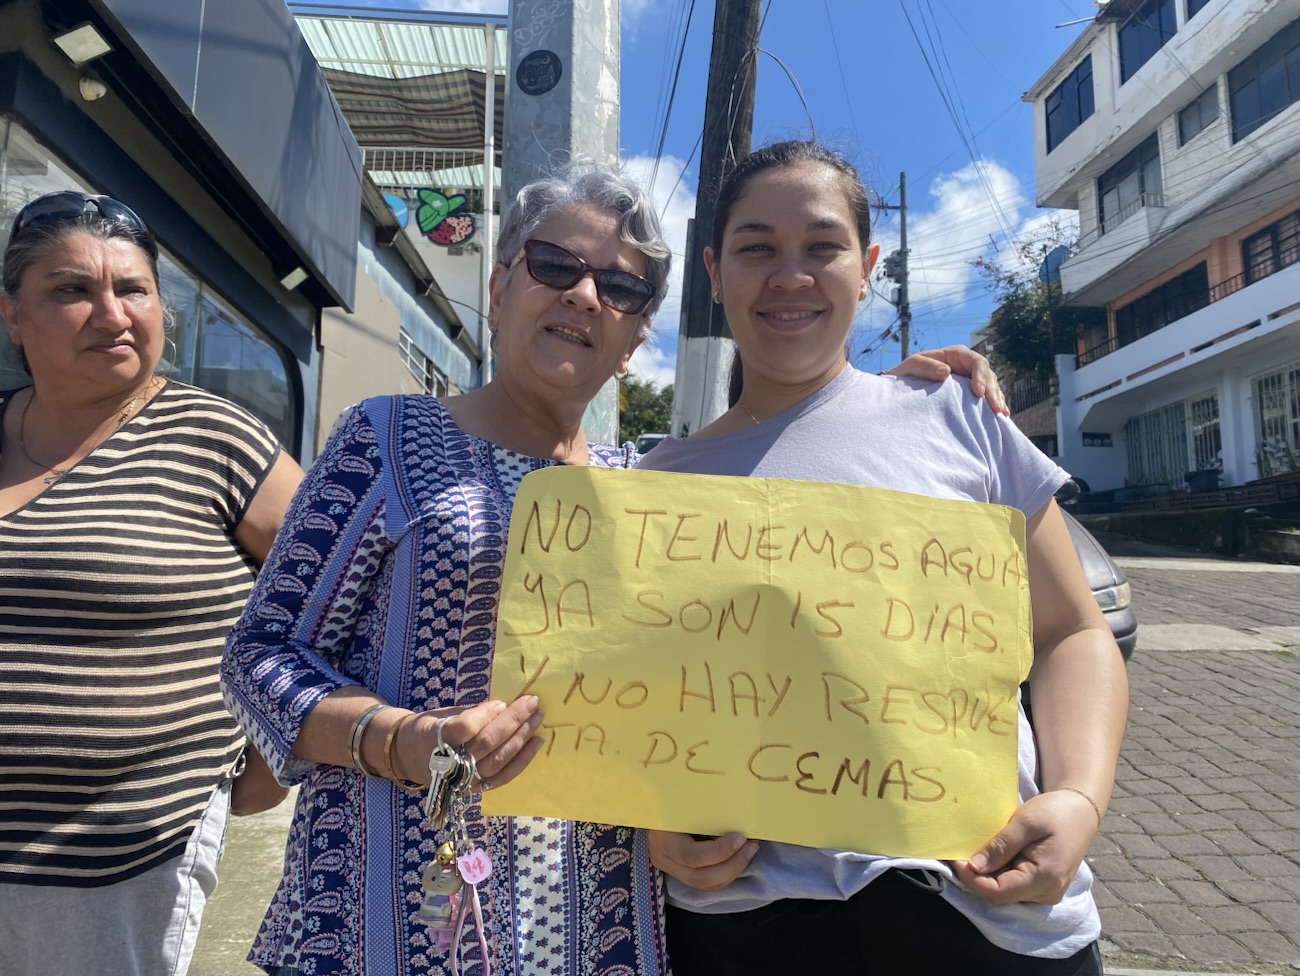 NO TENEMOS AGUA
YA SON 15 DiAS.
Y NO HAY RESPUE
TA. DE CEMAS.